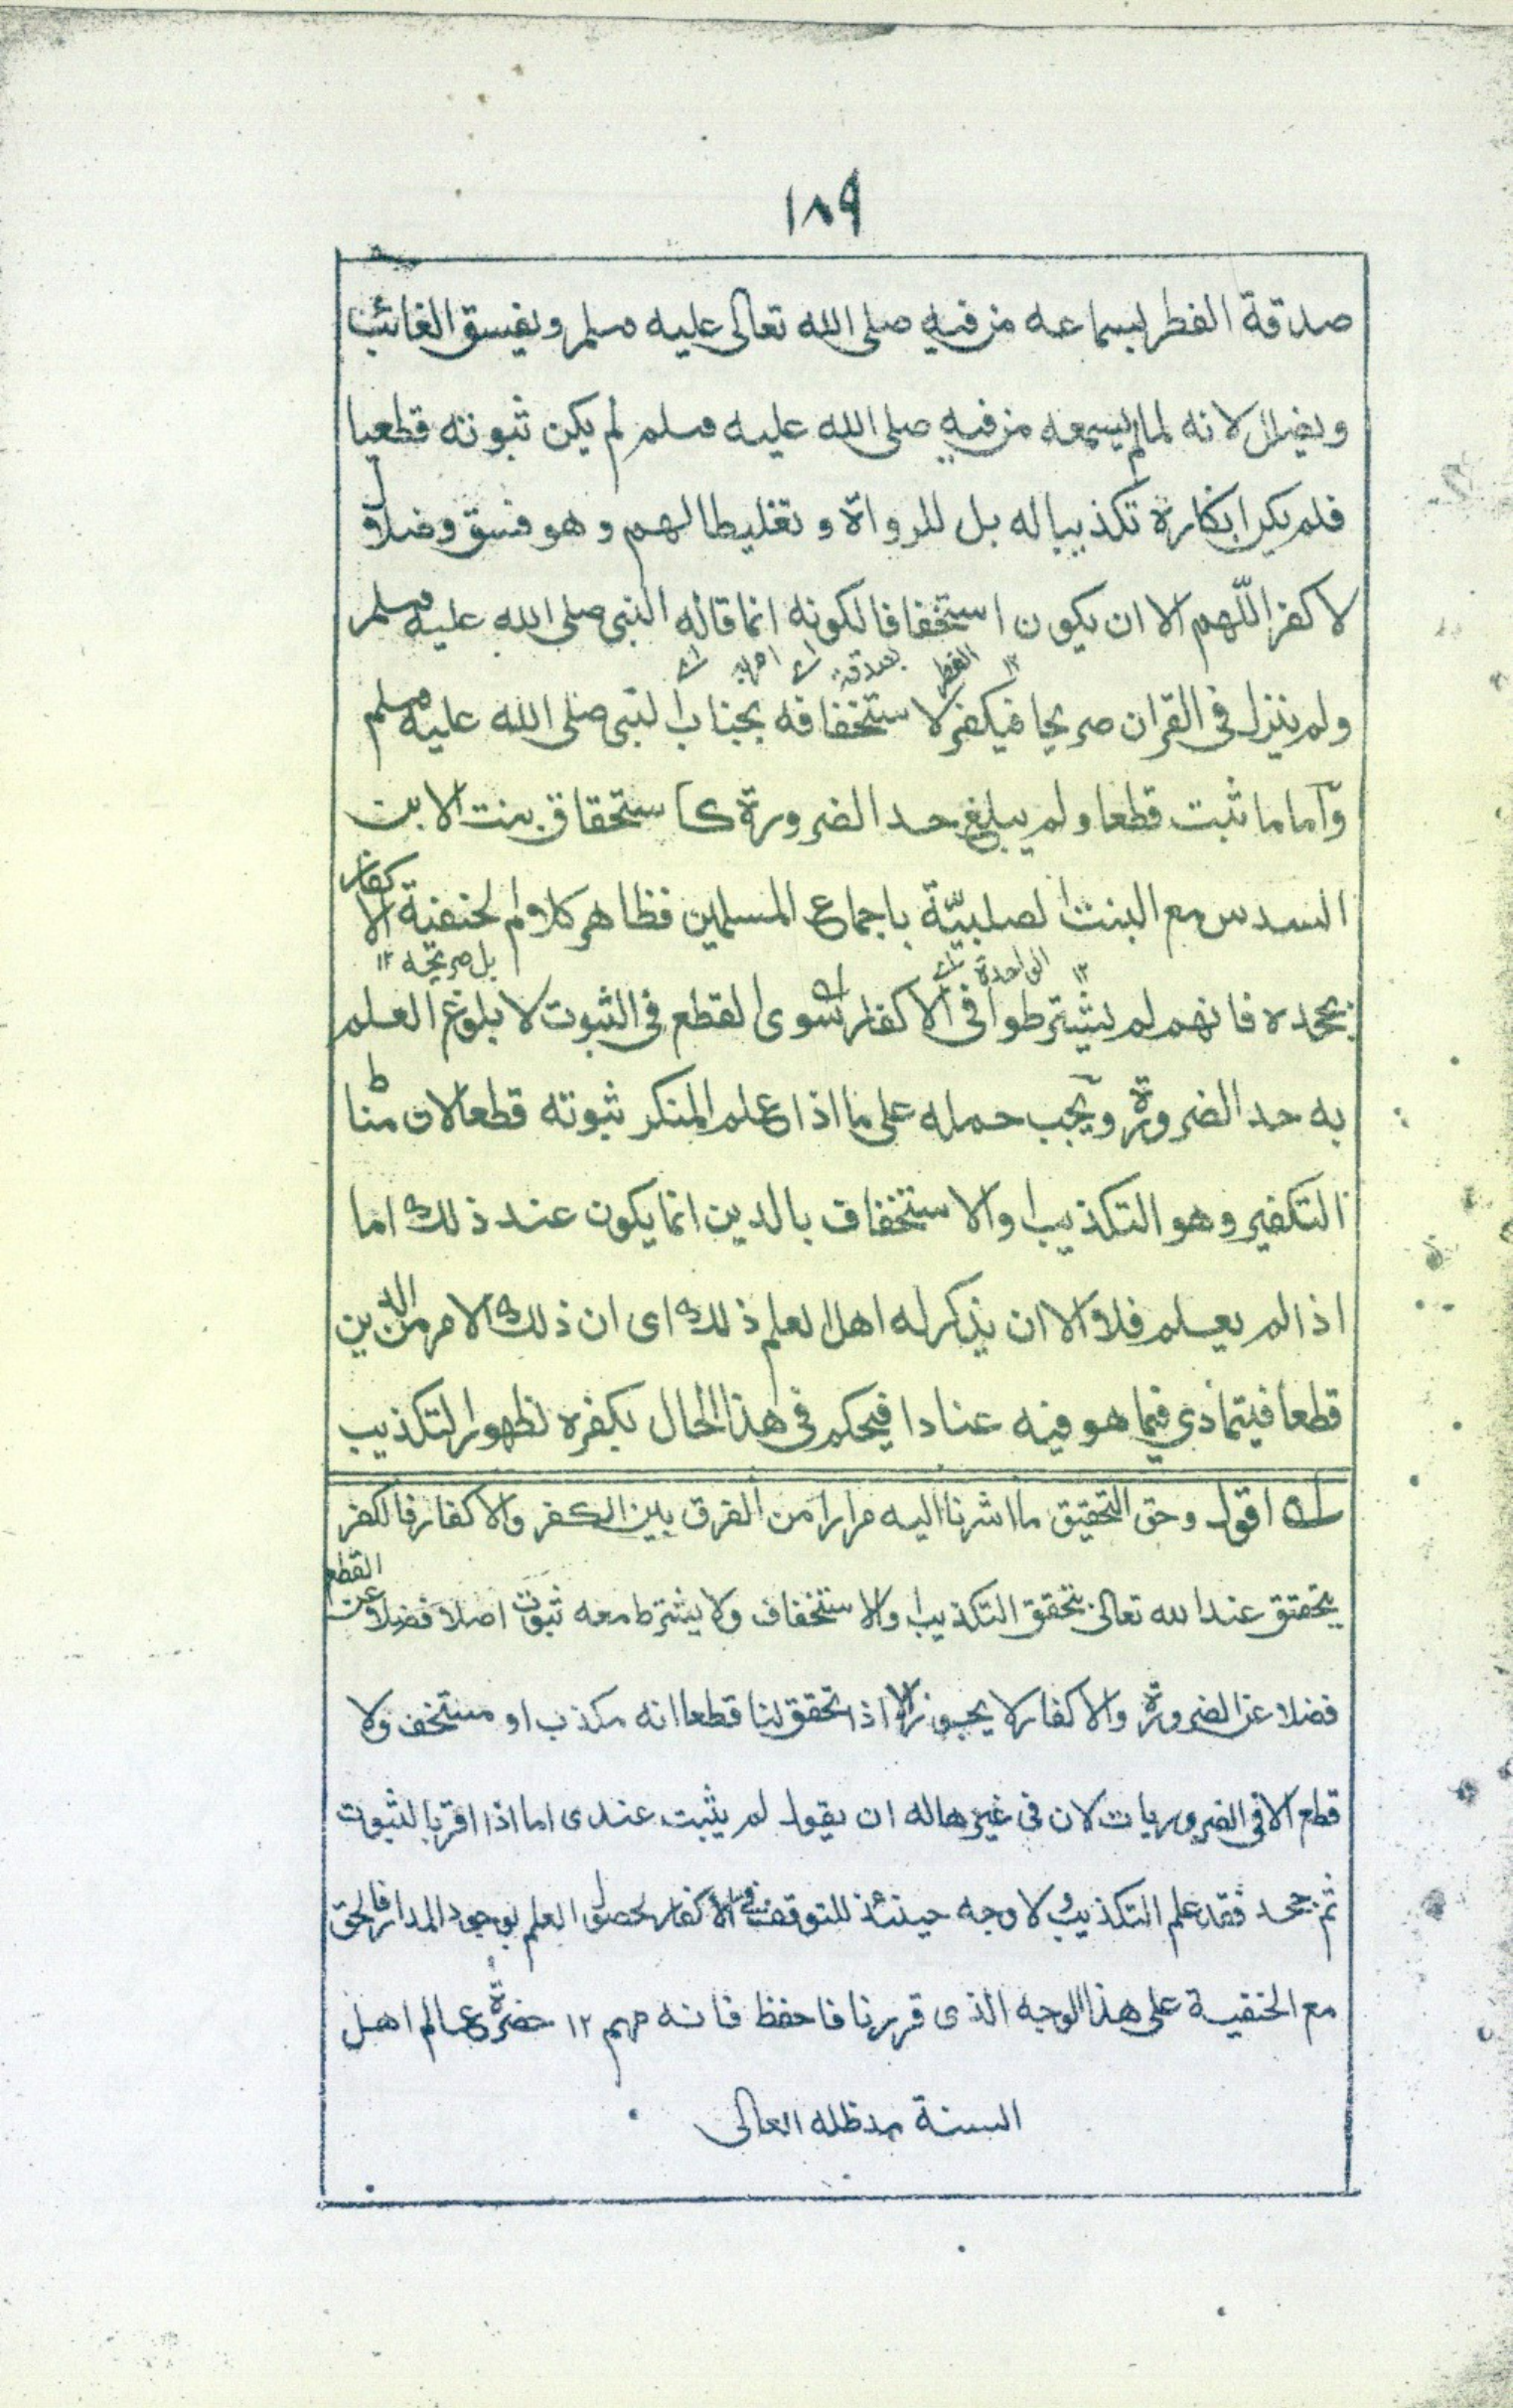 ١٨٩
صدقة الفطر بسماعه من فيه صلى الله تعالى عليه وسلم ويفسق الغائب
ويضلل لانه لما لم يسمعه من فيه صلى الله عليه وسلم لم يكن ثبوته قطعيا
فلم يكن انكاره تكذيبا له بل للرواة و تغليطا لهم و هو فسق وضلال
لا كفر اللّهم الا ان يكون استخفافا لكونه انما قاله النبي صلى الله عليه وسلم
اى امرا اى بصدقة الفطر ١٢
ولم ينزل في القران صريحا فيكفر لاستخفافه بجناب النبي صلى الله عليه وسلم
وآما ما ثبت قطعا ولم يبلغ حد الضرورة كاستحقاق بنت الابن
السدس مع البنت الصلبيّة باجماع المسلمين فظاهر كلام الحنفية الاكفار
اى الواحدة ١٢ بل صريحه ١٢
بجحده فانهم لم يشترطوا في الاكفار سوى القطع في الثبوت لا بلوغ العلم
به حد الضرورة ويجب حمله على ما اذا علم المنكر ثبوته قطعا لان مناط
التكفير وهو التكذيب او الاستخفاف بالدين انما يكون عند ذلك اما
اذا لم يعلم فلا الا ان يذكر له اهل العلم ذلك اى ان ذلك الامر من الدين
قطعا فيتمادى فيما هو فيه عنادا فيحكم في هذا الحال بكفره لظهور التكذيب
له اقول وحق التحقيق ما اشرنا اليه مرارا من الفرق بين الكفر والاكفار فالكفر
يتحقق عند الله تعالى بتحقق التكذيب او الاستخفاف ولا يشترط معه ثبوت اصلا فضلا عن القطع
فضلا عن الضرورة والاكفار لا يجوز الا اذا تحقق لنا قطعا انه مكذب او مستخف ولا
قطع الا في الضروريات لان في غيرها له ان يقول لم يثبت عندى اما اذا اقر بالثبوت
ثم جحد فقد علم التكذيب ولا وجه حينئذ للتوقف في الاكفار لحصول العلم بوجود المدار فالحق
مع الحنفية على هذا الوجه الذى قررنا فاحفظ فانه مهم ١٢ حضرة عالم اهل
السنة مد ظله العالى